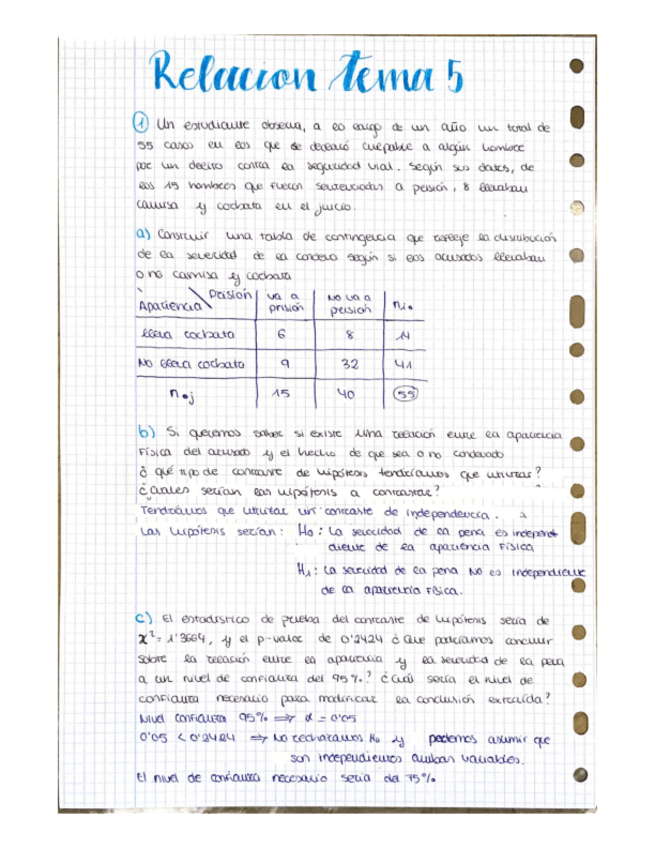 Relacion tema 5
1 Un estudiante observa, a lo largo de un año un total de
55 casos en los que se declaró culpable a algún hombre
por un delito contra la seguridad vial. Según sus datos, de
los 15 hombres que fueron sentenciados a prisión, 8 llevaban
camisa y corbata en el juicio.
a) Construir una tabla de contingencia que refleje la distribución
de la severidad de la condena según si los acusados llevaban
o no camisa y corbata
Prisión va a no va a ni•
Apariencia prisión prisión
lleva corbata 6 8 14
No lleva corbata 9 32 41
n•j 15 40 55
b) Si queremos saber si existe una relación entre la apariencia
física del acusado y el hecho de que sea o no condenado
¿qué tipo de contraste de hipótesis tendríamos que utilizar?
¿cuáles serían las hipótesis a contrastar?
Tendríamos que utilizar un contraste de independencia.
Las hipótesis serían: H0: La severidad de la pena es independ
diente de la apariencia física
H1: La severidad de la pena NO es independiente
de la apariencia física.
c) El estadístico de prueba del contraste de hipótesis sería de
χ²= 1'3664, y el p-valor de 0'2424 ¿Que podríamos concluir
sobre la relación entre la apariencia y la severidad de la pena
a un nivel de confianza del 95%? ¿Cuál sería el nivel de
confianza necesario para modificar la conclusión extraída?
Nivel confianza 95% ⟹ α = 0'05
0'05 < 0'2424 ⟹ No rechazamos H0 y podemos asumir que
son independientes ambas variables.
El nivel de confianza necesario sería del 75%